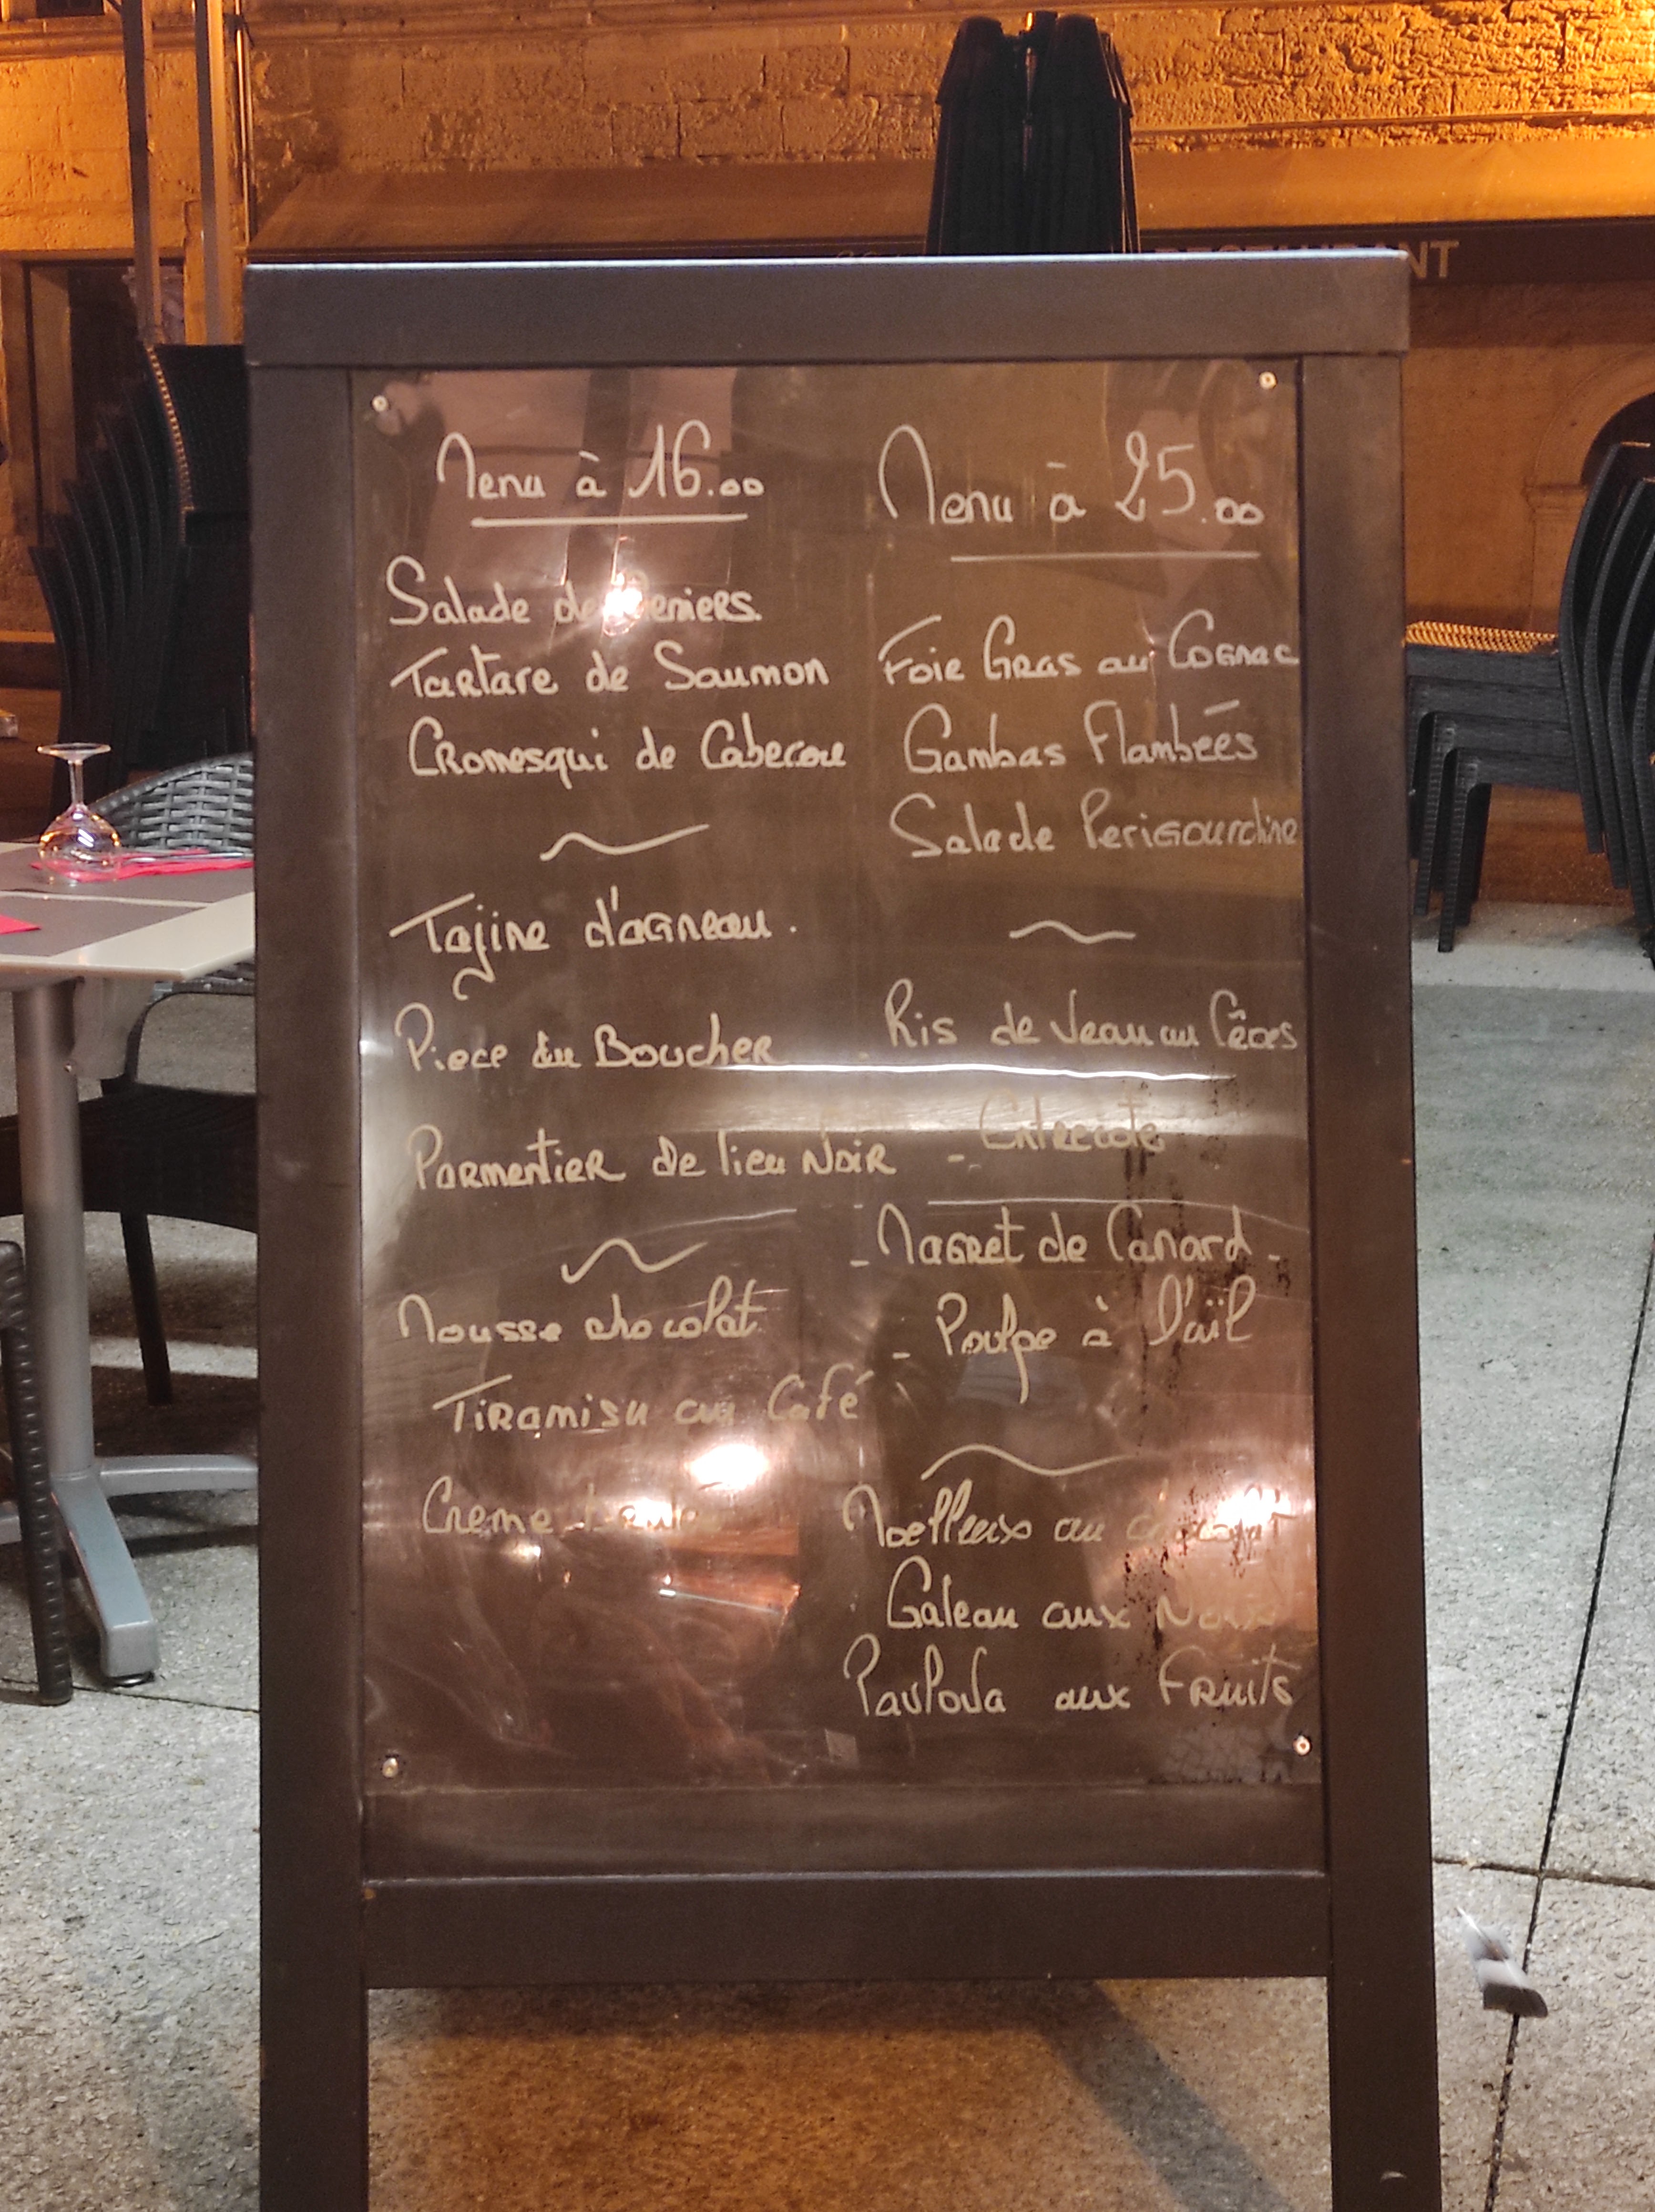 Menu à 16.00
Salade de
Tartare de Saumon
Cromesqui de Cabecou
Tajine d'agneau.
Piece du Boucher
Parmentier de lieu Noir
Mousse chocolat
Tiramisu au Café
Creme
Menu à 25.00
Foie Gras au Cognac
Gambas Flambées
Salade Perigourdine
Ris de Veau au Cêpes
- Entrecote
- Magret de Canard -
- Poulpe à l'aïl
Moelleux au chocolat
Gateau aux Noix
Pavlova aux Fruits
RESTAURANT